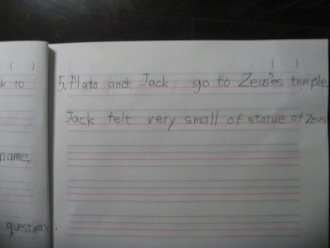 k to
5, Plato and Jack go to Zeus's temple
Jack felt very small of statue of Zeus
name,
question.